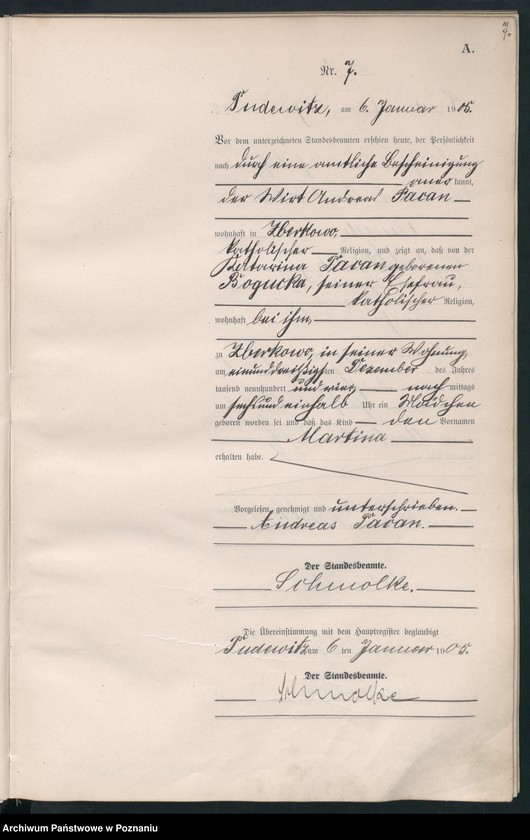 7.
A.
Nr. 7.
Pudewitz, am 6. Januar 1905.
Vor dem unterzeichneten Standesbeamten erschien heute, der Persönlichkeit
nach durch eine amtliche Bescheinigung
aner kannt,
der Wirt Andreas Pacan
wohnhaft in Zberkowo,
katholischer Religion, und zeigt an, daß von der
Katarina Pacan geborenen
Bogucka, seiner Ehefrau,
katholischer Religion,
wohnhaft bei ihm,
zu Zberkowo, in seiner Wohnung,
am einunddreißigsten Dezember des Jahres
tausend neunhundert und vier nach mittags
um sechs und einhalb Uhr ein Mädchen
geboren worden sei und daß das Kind den Vornamen
Martina
erhalten habe.
Vorgelesen, genehmigt und unterschrieben.
Andreas Pacan.
Der Standesbeamte.
Schmolke.
Die Übereinstimmung mit dem Hauptregister beglaubigt
Pudewitz am 6 ten Januar 1905.
Der Standesbeamte.
Schmolke
Archiwum Państwowe w Poznaniu